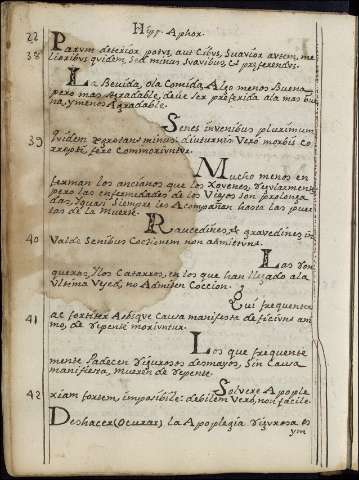 Hipp. Aphor.
22
38 Parum deterior potus, aut Cibus, Suavior autem, me
lioribus quidem, Sed minus Suavibus, est præferendus.
La Bevida, ola Comida, Algo menos Buena,
pero mas Agradable, deve ser preferida ala mas bue
na, y menos Agradable.
39 Senes iuvenibus plurimum
quidem ægrotant minus: diuturnis Vero morbis co
rrepti, fere Commoriuntur.
Mucho menos en
ferman los ancianos que los Xovenes,
pero las enfermedades de los Viejos son prolonga
das, y casi Siempre les Acompañan hasta las puer
tas de la Muerte.
40 Raucedines, & gravedines in
Valde Senibus Coctionem non admittunt.
Las ron
queras, y los Catarros, en los que han llegado ala
Ultima Vejed, no Admiten Coccion.
41 Qui frequenter
ac fortiter Absque Causa manifesta deficiunt ani
mo, de repente moriuntur.
Los que frequente
mente Padecen rigurosos desmayos, Sin Causa
manifiesta, mueren de repente.
42 Solvere Apople
xiam fortem, imposibile: debilem Vero, non facile.
Deshacer (o curar) la Apoplegia rigurosa es
ym